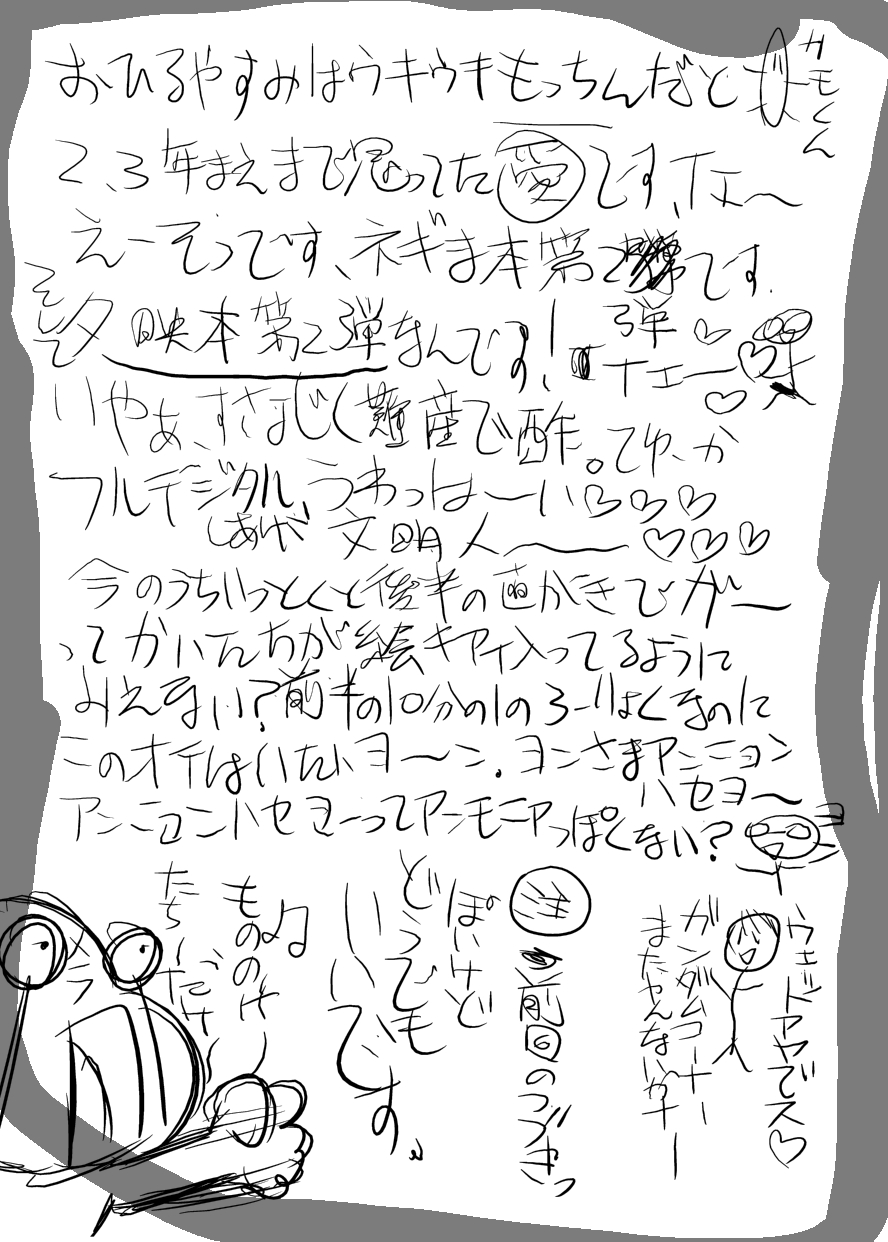 おひるやすみはウキウキもっちんだと
カモくん
2、3年まえまで思ってた愛です、イエ〜
えーそうです、ネギま本第2です。
弾
イエー♡
そして夕映本第2弾なんです!
いやぁ、すさまじく難産で酢。てゆーか
フルデジタル、うわっはーい♡♡♡
しあげ 文明人〜♡♡♡
今のうちいっとくと後半の画がきびガー
ってかいたんちが絵キアイ入ってるように
みえない?前半の10分の1のろーりょくなのに
このオイはいたいヨーン。ヨンさまアンニョン
ハセヨ〜
アンニョンハセヨーってアンモニアっぽくない?
ウェットアヤでス♡
ガンダムコーナー
まだやんないかナー
前回のつづきっ
ぽいけど
どうでも
いいです。
♫
もののけ
たち〜だけ